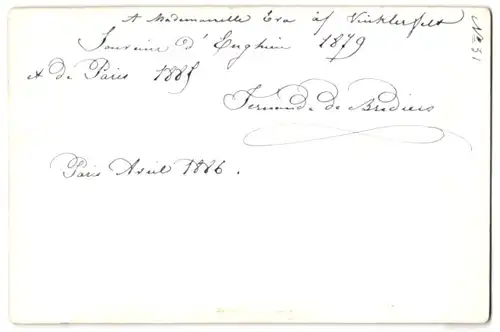 A Mademoiselle Eva af Vinklerfelt
Souvenir d'Enghien 1879
et de Paris 1885
Fernande de Bridiers
Paris Avril 1886.
No 31